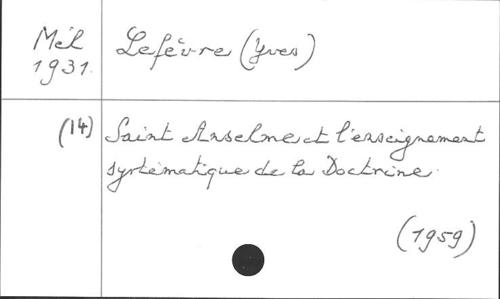 Mél
1931.
Lefèvre (Yves)
(14)
Saint Anselme et l'enseignement
systématique de la Doctrine.
(1959)